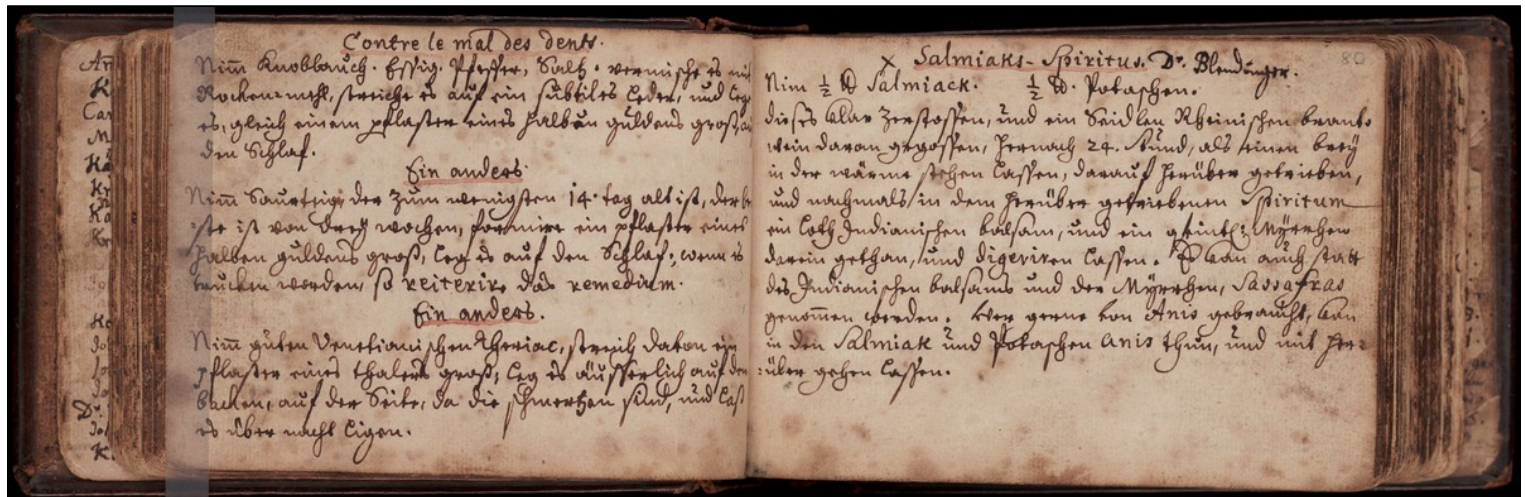 Contre le mal des dents.
Nim̄ Knoblauch. Essig. Pfeffer, Saltz. vermische es mit
Rockenmehl, streiche es auf ein subtiles Leder, und leg
es, gleich einem pflaster eines halben guldens groß, au
den Schlaf.
Ein anders.
Nim̄ Saurteig, der zum wenigsten 14. tag alt ist, der be
ste ist von dreÿ wochen, formire ein pflaster eines
halben guldens groß, leg es auf den Schlaf, wenn es
trucken worden, so reiterire das remedium.
Ein anders.
Nim̄ guten Venetianischen Theriac, streich davon ein
pflaster eines thalers groß, leg es äusserlich auf den
backen, auf der Seite, da die schmertzen sind, und laß
es über nacht ligen.
80
x Salmiaks-Spiritus. Dr. Blendinger.
Nim ½ ℔ Salmiack. ½ ℔. Potaschen.
dieses klar zerstossen, und ein Seidlen Rheinischen brant-
wein daran gegossen, hernach 24. Stund, als einen breÿ
in der wärme stehen lassen, darauf herüber getrieben,
und nachmals in dem herüber getriebenen Spiritum
ein Loth Indianischen balsam, und ein quintl: Mÿrrhen
darein gethan, und digeriren lassen. Es kan auch statt
des Indianischen balsams und der Mÿrrhen, Sassafras
genom̄en werden. Wer gerne von Anis gebraucht, kan
in den Salmiak und Potaschen Anis thun, und mit her-
:über gehen lassen.